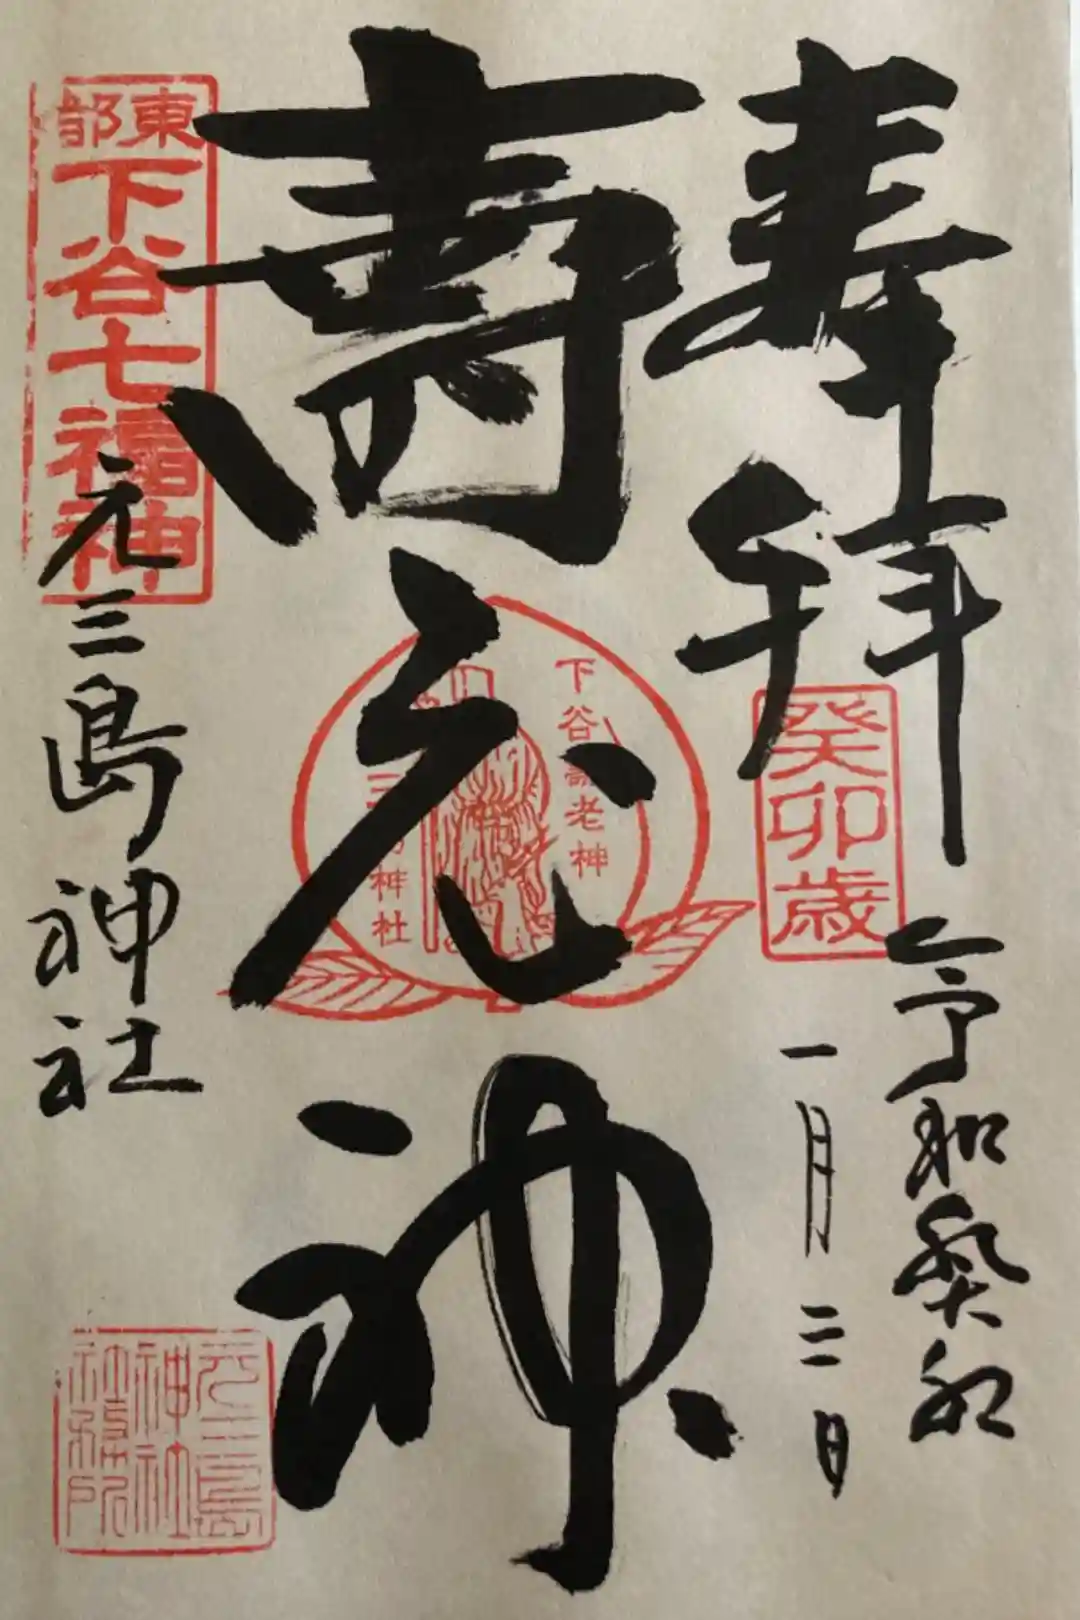 奉拝
癸卯歳
令和癸卯
一月三日
寿老神
下谷寿老神
三島神社
東部
下谷七福神
元三島神社
元三島
神社
社務所